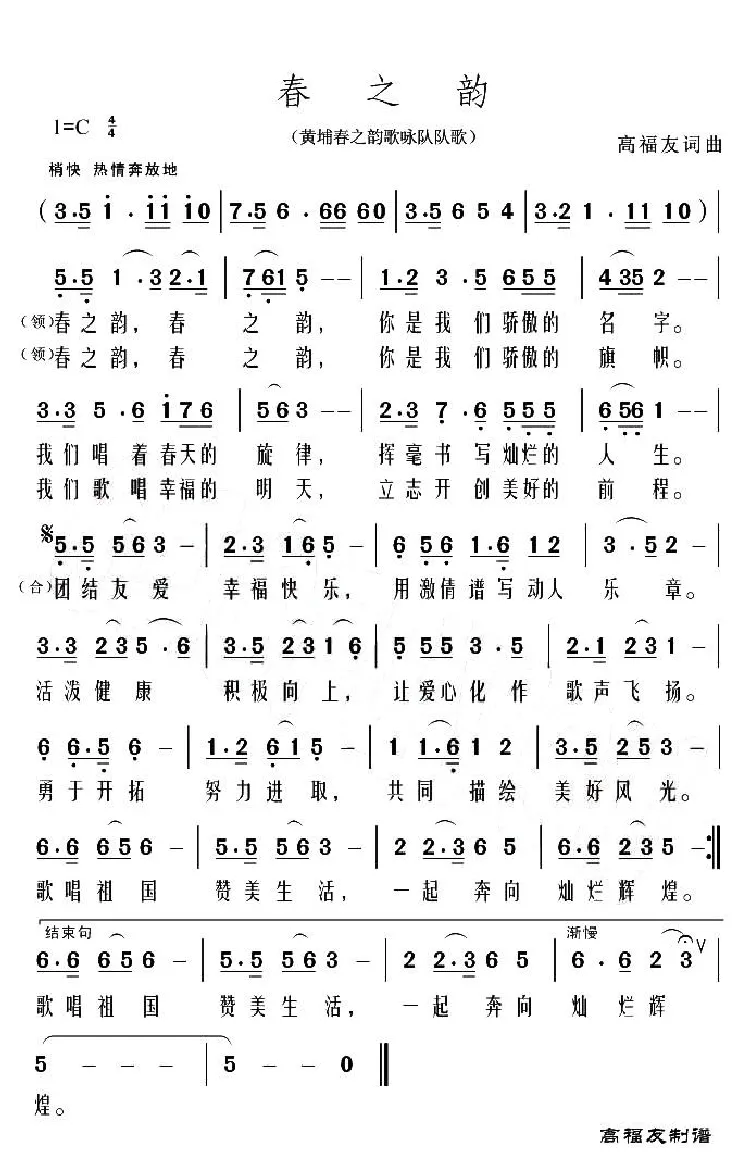 春之韵
1=C 4/4
（黄埔春之韵歌咏队队歌）
高福友词曲
稍快 热情奔放地
(3.5 1. 11 10 | 7.5 6. 66 60 | 3.5 6 5 4 | 3.2 1. 11 10)|
5.5 1.3 2.1 | 761 5 -- | 1.2 3.5 655 | 435 2 -- |
（领）春之韵，春 之 韵，你是我们骄傲的 名 字。
（领）春之韵，春 之 韵，你是我们骄傲的 旗 帜。
3.3 5.6 176 | 563 -- | 2.3 7.6 555 | 656 1 -- |
我们唱着春天的 旋律，挥毫书写灿烂的 人生。
我们歌唱幸福的 明天，立志开创美好的 前程。
𝄋 5.5 563 - | 2.3 165 - | 6 56 1.6 12 | 3.52 - |
（合）团结友爱 幸福快乐，用激情谱写动人 乐章。
3.3 235.6 | 3.5 231 6 | 5 553.5 | 2.1 231 - |
活泼健康 积极向上，让爱心化作 歌声飞扬。
6 6.56 - | 1.2 615 - | 1 1.612 | 3.5 253 - |
勇于开拓 努力进取，共同描绘 美好风光。
6.6 656 - | 5.5 563 - | 2 2.365 | 6.6 235 - :||
歌唱祖国 赞美生活，一起奔向 灿烂辉煌。
结束句 渐慢
6.6 656 - | 5.5 563 - | 2 2.3 6 5 | 6.6 2 3 V|
歌唱祖国 赞美生活，一起奔向 灿烂辉
5 - - - | 5 - - 0 ||
煌。
高福友制谱